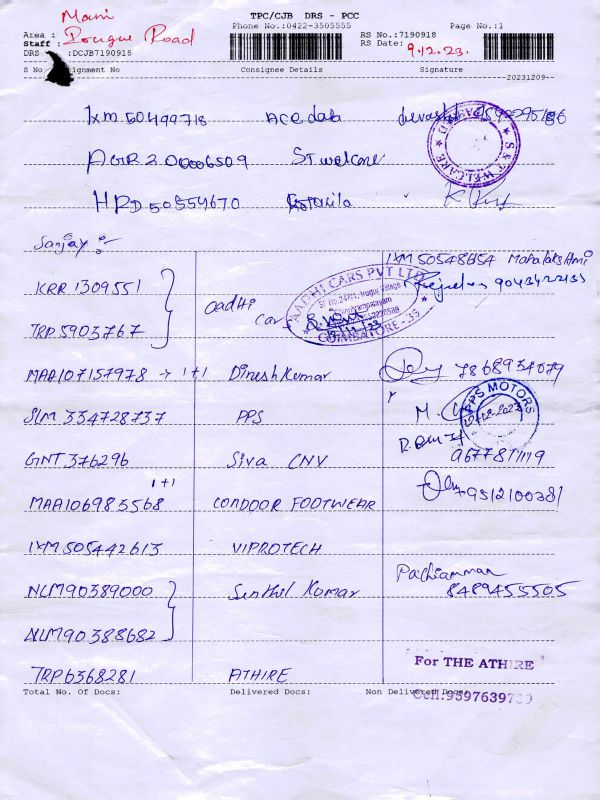 Mani
TPC/CJB DRS - PCC
Phone No.:0422-3505555
Page No.:1
Area :
Staff :
Road
RS No.:7190918
RS Date:
9.12.23.
DRS :DCJB7190918
S No signment No Consignee Details Signature
20231209
IXM 50499718 Ace data
AGR 200006509 ST welcome
S&T WELCARE
HPD 50554670
Sanjay :-
IXM 50548654 Mahalakshmi
KRR 1309551
aadhi car
AADHI CARS PVT LTD
COIMBATORE-35
TRP 5903767
MAA107157978 → 1+1 Dinesh Kumar 7868934079
SLM 334728737 PPS
PPS MOTORS
GNT 376296 Siva CNV
1+1
MAA106983568 CONDOOR FOOTWEAR 79512100381
IXM505442613 VIPROTECH
Pachiamman
NLM90389000 Senthil Kumar 8489455505
NLM90388682
TRP6368281 ATHIRE For THE ATHIRE
Total No. Of Docs: Delivered Docs: Non Delivered Docs:
Cell:9597639739